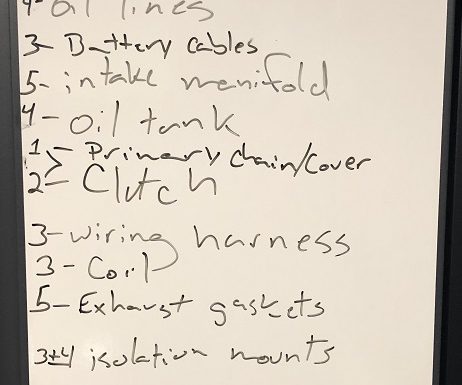 4- oil lines
3- Battery cables
5- intake manifold
4- oil tank
1> Primary chain/cover
2- Clutch
3- wiring harness
3- Coil
5- Exhaust gaskets
3+4 isolation mounts